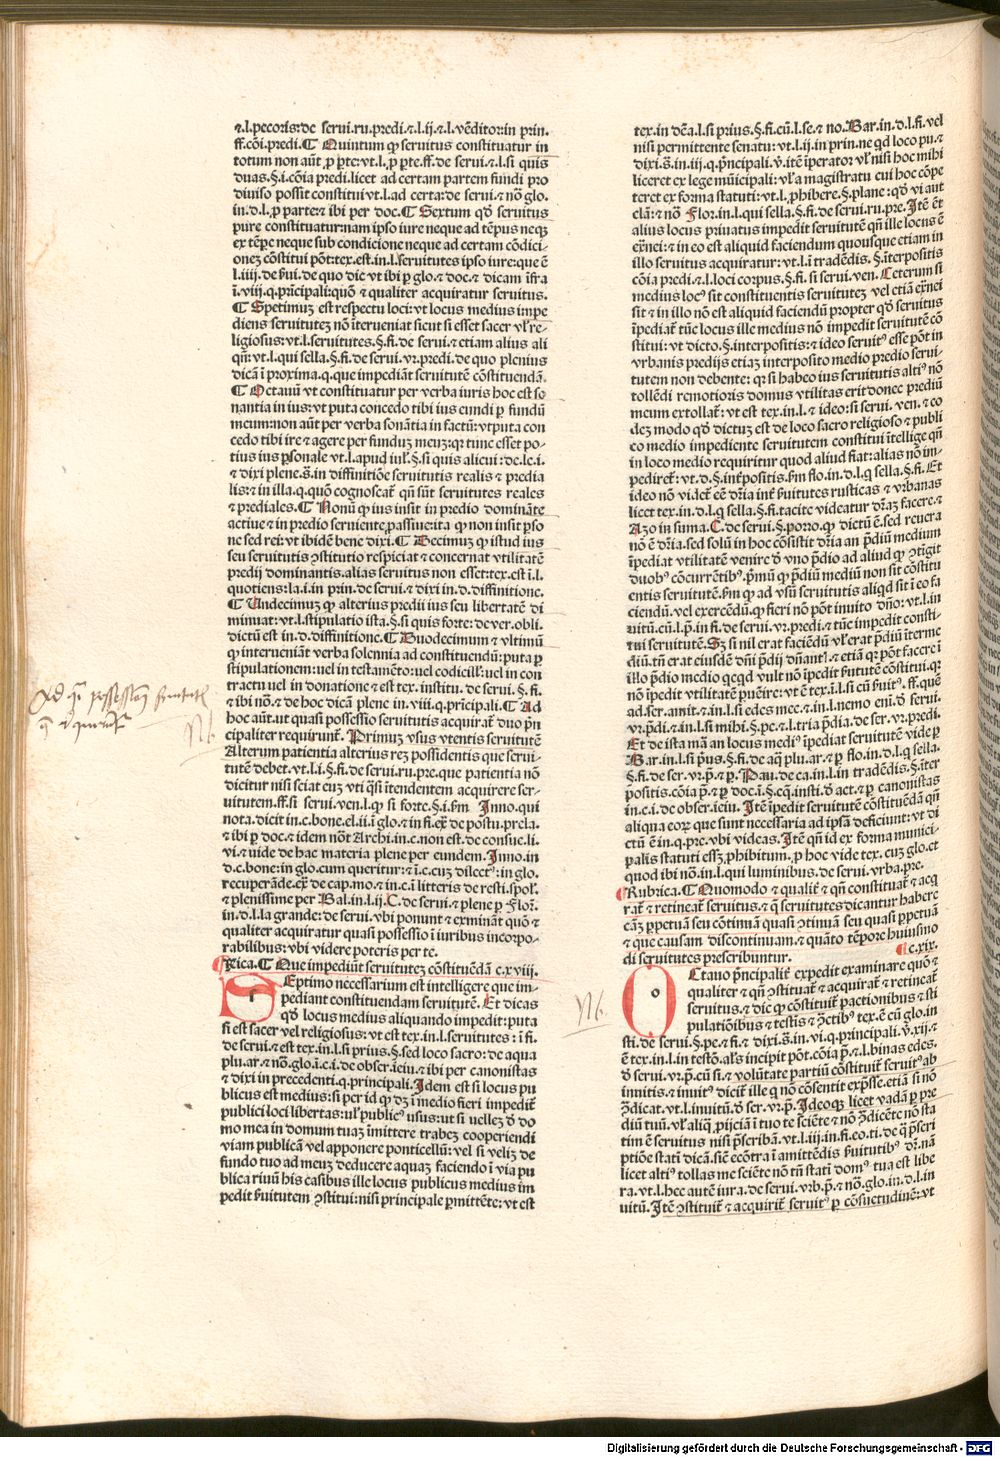 ⁊.l.pecoris:de serui.ru.predi.⁊.l.ij.⁊.l.vēditor:in prin.
ff.cōi.predi.¶ Quintum ꝙ seruitus constituatur in
totum non aūt ꝓ ꝑte:vt.l.ꝓ ꝑte.ff.de serui.⁊.l.si quis
duas.§.i.cōia predi.licet ad certam partem fundi pro
diuiso possit constitui vt.l.ad certa:de serui.⁊ nō glo.
in.d.l.ꝓ parte:⁊ ibi per doc.¶ Sextum qd̄ seruitus
pure constituatur:nam ipso iure neque ad tēpus neqꝫ
ex tēpe neque sub condicione neque ad certam cōdici-
oneꝫ cōstitui pōt:tex.est.in.l.seruitutes ipso iure:que ē
l.iiij.de ẜui.de quo dic vt ibi ꝑ glo.⁊ doc.⁊ dicam īfra
ī.viij.q.prīcipali:quō ⁊ qualiter acquiratur seruitus.
¶ Septimuꝫ est respectu loci:vt locus medius impe
diens seruituteꝫ nō īterueniat sicut si esset sacer vl̓ re-
ligiosus:vt.l.seruitutes.§.fi.de serui.⁊ etiam alius ali
qn̄:vt.l.qui sella.§.fi.de serui.vr.predi.de quo plenius
dicā ī proxima.q.que impediāt seruitutē cōstituendā.
¶ Octauū vt constituatur per verba iuris hoc est so
nantia in ius:vt puta concedo tibi ius eundi ꝑ fundū
meum:non aūt per verba sonātia in factū:vtputa con
cedo tibi ire ⁊ agere per funduꝫ meuꝫ:qꝛ tunc esset po-
tius ius ꝑsonale vt.l.apud iul̓.§.si quis alicui:de.le.i.
⁊ dixi plene.s̄.in diffinitiōe seruitutis realis ⁊ predia
lis:⁊ in illa.q.quō cognoscat̄ qn̄ sūt seruitutes reales
⁊ prediales.¶ Nonū ꝙ ius insit in predio domināte
actiue ⁊ in predio seruiente ꝑassiue:ita ꝙ non insit ꝑso
ne sed rei:vt ibidē bene dixi.¶ Decimuꝫ ꝙ istud ius
seu seruitutis ꝯstitutio respiciat ⁊ concernat vtilitatē
predij dominantis.alias seruitus non esset:tex.est ī.l.
quotiens:la.i.in prin.de serui.⁊ dixi in.d.diffinitione.
¶ Undecimuꝫ ꝙ alterius predij ius seu libertatē di
minuat:vt.l.stipulatio ista.§.si quis forte:de ver.obli.
dictū est in.d.diffinitione.¶ Duodecimum ⁊ vltimū
ꝙ interueniāt verba solennia ad constituendū:puta ꝑ
stipulationem:uel in testamēto:uel codicill̓:uel in con
tractu uel in donatione ⁊ est tex.institu.de serui.§.fi.
⁊ ibi nō.⁊ de hoc dicā plene in.viij.q.prīcipali.¶ Ad
hoc aūt.ut quasi possessio seruitutis acquirat̄ duo pn̄
cipaliter requirunt̄.Primuꝫ vsus vtentis seruitutē
Alterum patientia alterius reꝫ possidentis que serui-
tutē debet.vt.l.i.§.fi.de serui.ru.pre.que patientia nō
dicitur nisi sciat euꝫ vti q̄si ītendentem acquirere ser-
uitutem.ff.si serui.ven.l.ꝙ si forte.§.i.ẜm Inno.qui
nota.dicit in.c.bone.el.ij.ī glo.⁊ in fi.ex̄ de postu.prela.
⁊ ibi ꝑ doc.⁊ idem nōt Archi.in.c.non est.de consue.li.
vi.⁊ uide de hac materia plene per eundem.Inno.in
d.c.bone:in glo.cum queritur:⁊ ī.c.cuꝫ dilect̓:in glo.
recuperāde.ex̄ de cap.mo.⁊ in.c.ī litteris de resti.spol̓.
⁊ plenissime per Bal.in.l.ij.C.de serui.⁊ plene ꝑ Flor̄.
in.d.l.la grande:de serui.vbi ponunt ⁊ exmināt quō ⁊
qualiter acquiratur quasi possessio ī iuribus incorpo-
rabilibus:vbi videre poteris per te.
Rica.¶ Que impediūt seruituteꝫ cōstituēdā c.xviij.
SEptimo necessarium est intelligere que im-
pediant constituendam seruitutē.Et dicas
qd̄ locus medius aliquando impedit:puta
si est sacer vel religiosus:vt est tex.in.l.seruitutes:ī fi.
de serui.⁊ est tex.in.l.si prius.§.sed loco sacro:de aqua
plu.ar.⁊ nō.glo.ī.c.i.de obser.ieiu.⁊ ibi per canonistas
⁊ dixi in precedenti.q.principali.Idem est si locus pu
blicus est medius:si per id ꝙ dꝫ ī medio fieri impedit̄
publici loci libertas:ul̓ public̓ usus:ut si uelleꝫ d̄ do
mo mea in domum tuaꝫ īmittere trabeꝫ cooperiendi
viam publicā vel apponere ponticellū:vel si veliꝫ de
fundo tuo ad meuꝫ deducere aquaꝫ faciendo ī via pu
blica riuū his casibus ille locus publicus medius im
pedit ẜuitutem ꝯstitui:nisi principale ꝑmittēte:vt est
tex.in dēa.l.si prius.§.fi.cū.l.se.⁊ no.Bar.in.d.l.fi.vel
nisi permittente senatu:vt.l.ij.in prin.ne qd loco pu.⁊
dixi.s̄.in.iij.q.pn̄cipali.v̄.itē īperator vl̓ nisi hoc mihi
liceret ex lege mūicipali:vl̓ a magistratu cui hoc cōpe
teret ex forma statuti:vt.l.ꝓhibere.§.plane:qd̄ vi aut
clā:⁊ nō Flor.in.l.qui sella.§.fi.de serui.ru.pre.Itē ēt
alius locus priuatus impedit seruitutē qn̄ ille locus ē
ex̄nei:⁊ in eo est aliquid faciendum quousque etiam in
illo seruitus acquiratur:vt.l.ī tradēdis.§.īterpositis
cōia predi.⁊.l.loci corpus.§.fi.si serui.ven.Ceterum si
medius loc̓ sit constituentis seruituteꝫ vel etiā ex̄nei
sit ⁊ in illo nō est aliquid faciendū propter qd̄ seruitus
īpediat̄ tūc locus ille medius nō impedit seruitutē cō
stitui:vt dicto.§.interpositis:⁊ ideo seruit̓ esse pōt in
vrbanis predijs etiaꝫ interposito medio predio serui-
tutem non debente:qꝛ si habeo ius seruitutis alti̓ nō
tollēdi remotioris domus vtilitas erit donec prediū
meum extollat̄:vt est tex.in.l.⁊ ideo:si serui.ven.⁊ eo
deꝫ modo qd̄ dictuꝫ est de loco sacro religioso ⁊ publi
co medio impediente seruitutem constitui ītellige qn̄
in loco medio requiritur quod aliud fiat:alias nō im-
pediret̄:vt.d.§.int̄positis.ẜm flo.in.d.l.q sella.§.fi.Et
ideo nō videt̄ eē dr̄ia int̄ ẜuitutes rusticas ⁊ vrbanas
licet tex.in.d.l.q sella.§.fi.tacite videatur dr̄aꝫ facere.⁊
Azo in suma.C.de serui.§.porro.ꝙ dictū ē.sed reuera
nō ē dr̄ia.sed solū in hoc cōsistit dr̄ia an p̄diū medium
īpediat vtilitatē venire d̄ vno p̄dio ad aliud ꝙ ꝯtīgit
duob̓ cōcurrētib̓.pmū ꝙ p̄diū mediū non sit cōstitu
entis seruitutē.ẜm ꝙ ad vsū seruitutis aliqd sit ī eo fa
ciendū.vel exercēdū.ꝙ fieri nō pōt inuito dn̄o:vt.l.in
uitū.cū.l.p̄.in fi.de serui.vr.predi.⁊ tūc impedit consti-
tui seruitutē.Sꝫ si nil erat faciēdū vl̓ erat p̄diū īterme
diū.tn̄ erat eiusdē dn̄i p̄dij dn̄ant̄.⁊ etiā qꝛ pōt facere ī
illo p̄dio medio qcqd vult nō īpedit ẜutitutē cōstitui.qꝛ
nō īpedit vtilitatē puēire:vt ē tex.ī.l.si cū ẜuit̓.ff.quē
ad.ser.amit.⁊ in.l.si edes mee.⁊ in.l.nemo eni.d̄ serui.
vr.p̄di.⁊ in.l.si mihi.§.pe.⁊.l.tria p̄dia.de ser.vr.predi.
Et de ista mā an locus medi̓ īpediat seruitutē vide ꝑ
Bar.in.l.si p̄us.§.fi.de aq̄ plu.ar.⁊ ꝑ flo.in.d.l.q sella.
§.fi.de ser.vr.p̄.⁊ ꝑ.Pau.de ca.in.l.in tradēdis.§.īter
positis.cōia p̄.⁊ ꝑ doc.ī.§.cq̄.insti.d̄ act.⁊ ꝑ canonistas
in.c.i.de obser.ieiu.Itē īpedit seruitutē cōstituēdā qn̄
aliqua eorꝫ que sunt necessaria ad ipsā deficiunt:vt di
ctū ē in.q.pre.vbi videas.Itē qn̄ id ex forma munici-
palis statuti esseꝫ.ꝓhibitum.ꝓ hoc vide tex.cuꝫ glo.et
quod ibi nō.in.l.qui luminibus.de serui.vrba.pre.
Rubrica.¶ Quomodo ⁊ qualit̄ ⁊ qn̄ constituat̄ ⁊ acq
rat̄ ⁊ retineat̄ seruitus.⁊ q̄ seruitutes dicantur habere
cāꝫ ꝑpetuā seu cōtinuā quasi ꝯtinuā seu quasi ꝑpetuā
⁊ que causam discontinuam.⁊ quāto tēpore huiusmo
di seruitutes prescribuntur. c.xix.
OCtauo pn̄cipalit̄ expedit examinare quō ⁊
qualiter ⁊ qn̄ ꝯstituat̄ ⁊ acquirat̄ ⁊ retineat̄
seruitus.⁊ dic ꝙ cōstituit̄ pactionibus ⁊ sti
pulatiōibus ⁊ testis ⁊ ꝯ̄ctib̓ tex.ē cū glo.in
sti.de serui.§.pe.⁊ fi.⁊ dixi.s̄.in.vi.q.principali.v̄.xij.⁊
ē tex.in.l.in testō.al̓s incipit pōt.cōia p̄.⁊.l.binas edes.
d̄ serui.vr.p̄.cū si.⁊ volūtate partiū cōstituit̄ seruit̓ ab
inuitis.⁊ inuit̓ dicit̄ ille q nō cōsentit exp̄sse.etiā si nō
ꝯ̄dicat.vt.l.inuitū.d̄ ser.vr.p̄.Ideoqꝫ licet vadā ꝑ pre
diū tuū.vl̓ aliq̄ ꝓijciā ī tuo te sciēte ⁊ nō ꝯ̄dicēte nō sta
tim ē seruitus nisi p̄scribā.vt.l.iij.in fi.co.ti.de q̄ p̄scri
ptiōe statī dicā.sic̄ ecōtra ī amittēdis ẜuitutib̓ dr̄.nā
licet alti̓ tollas me sciēte nō tn̄ statī dom̓ tua est libe
ra.vt.l.hec autē iura.de serui.vrb.p̄.⁊ nō.glo.in.d.l.in
uitū.Itē ꝯstituit̄ ⁊ acquirit̄ seruit̓ ꝑ cōsuetudinē:vt
Nb.
Nb.
Digitalisierung gefördert durch die Deutsche Forschungsgemeinschaft - DFG